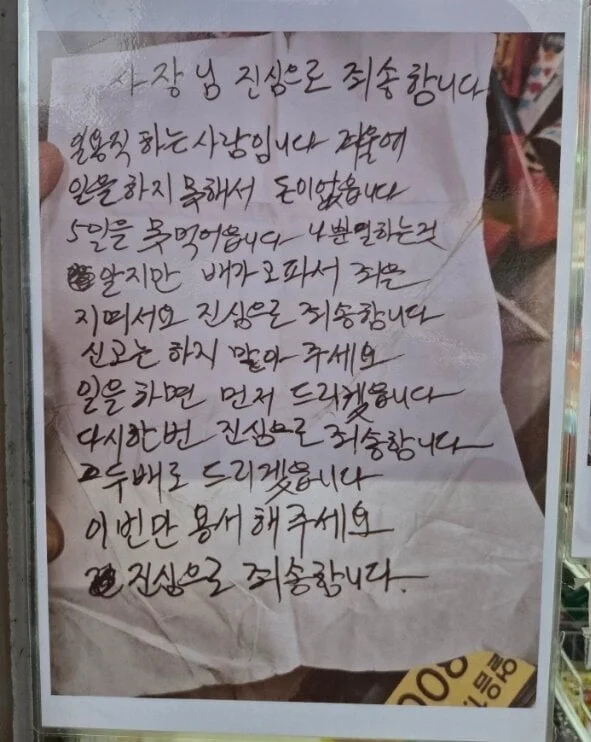 사장님 진심으로 죄송합니다
일용직 하는 사람입니다 겨울에
일을 하지 못해서 돈이없읍니다
5일을 못먹어읍니다 나쁜일하는것
알지만 배가 고파서 죄을
지떠서요 진심으로 죄송합니다
신고는 하지 말아 주세요
일을 하면 먼저 드리겠읍니다
다시한번 진심으로 죄송합니다
두배로 드리겠읍니다
이번만 용서해주세요
진심으로 죄송합니다.
008